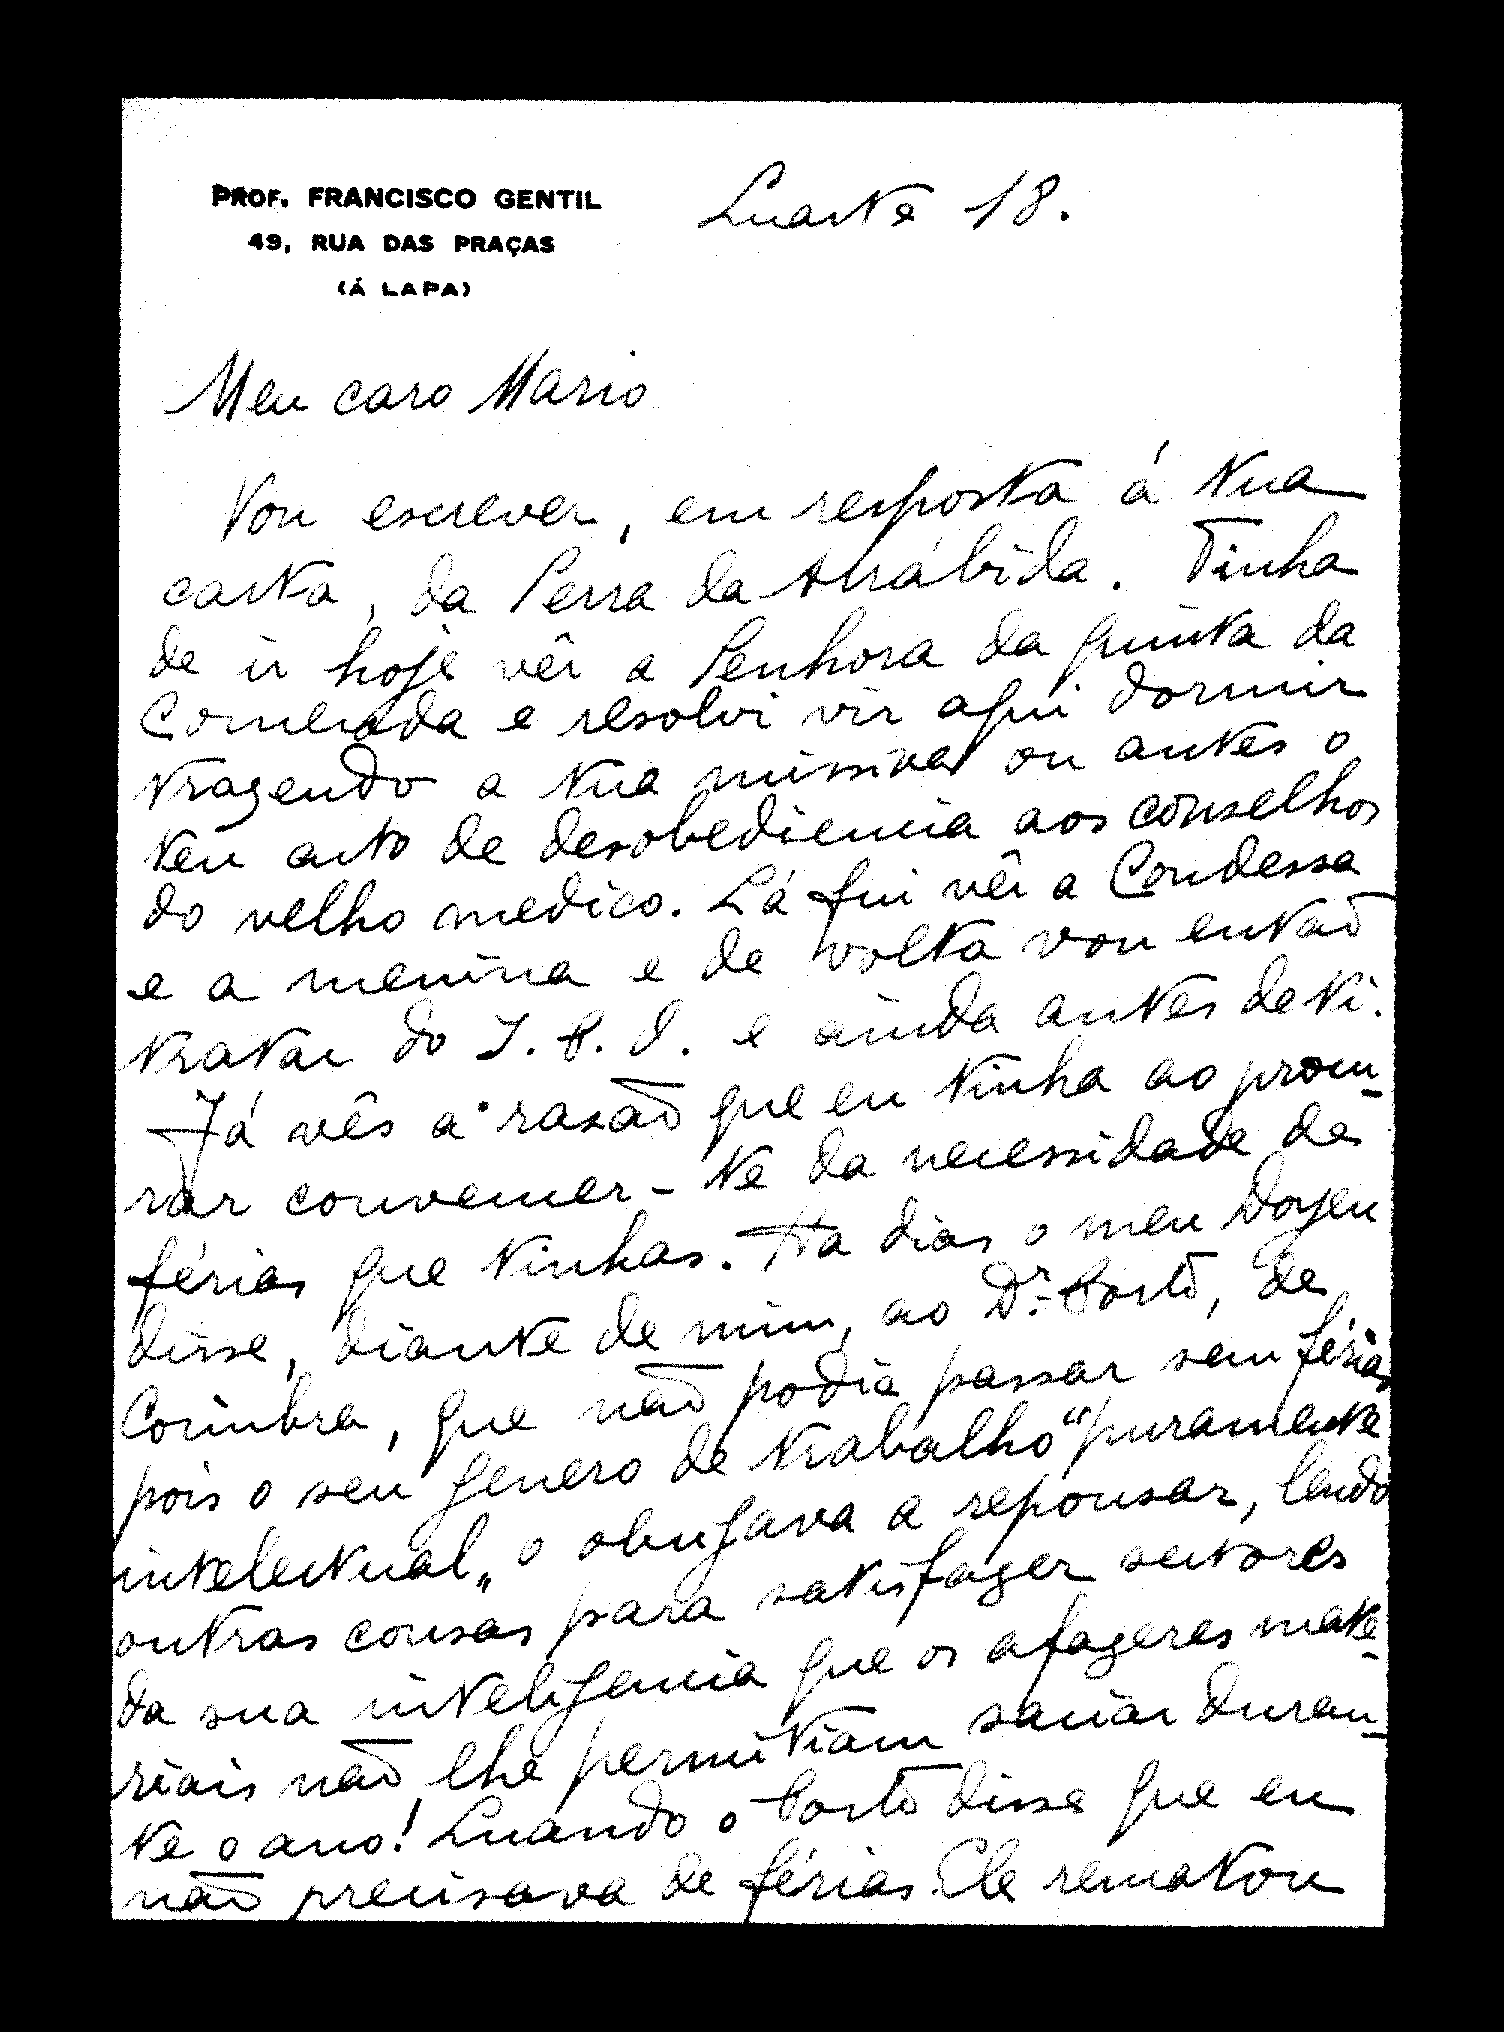 PROF. FRANCISCO GENTIL
49, RUA DAS PRAÇAS
(Á LAPA)
Quarta 18.
Meu caro Mario
Vou escrever, em resposta á tua
carta, da Serra da Arrábida. Tinha
de ir hoje vêr a Senhora da quinta da
Comenda e resolvi vir aqui dormir
tragendo a tua missiva ou antes o
teu acto de desobediencia aos conselhos
do velho medico. Lá fui vêr a Condessa
e a menina e de volta vou então
tratar do I. P. O. e ainda antes de ti.
Já vês a rasão que eu tinha ao procu-
rar convencer-te da necessidade de
férias que tinhas. Ha dias o meu Doyen
disse, diante de mim, ao Dr. Porto, de
Coimbra, que não podia passar sem férias
pois o seu genero de trabalho "puramente
intelectual" o obrigava a repousar, lendo
outras cousas para satisfazer setores
da sua inteligencia que os afazeres mate-
riais não lhe permitiam saciar duran-
te o ano! Quando o Porto disse que eu
não precisava de férias Ele rematou